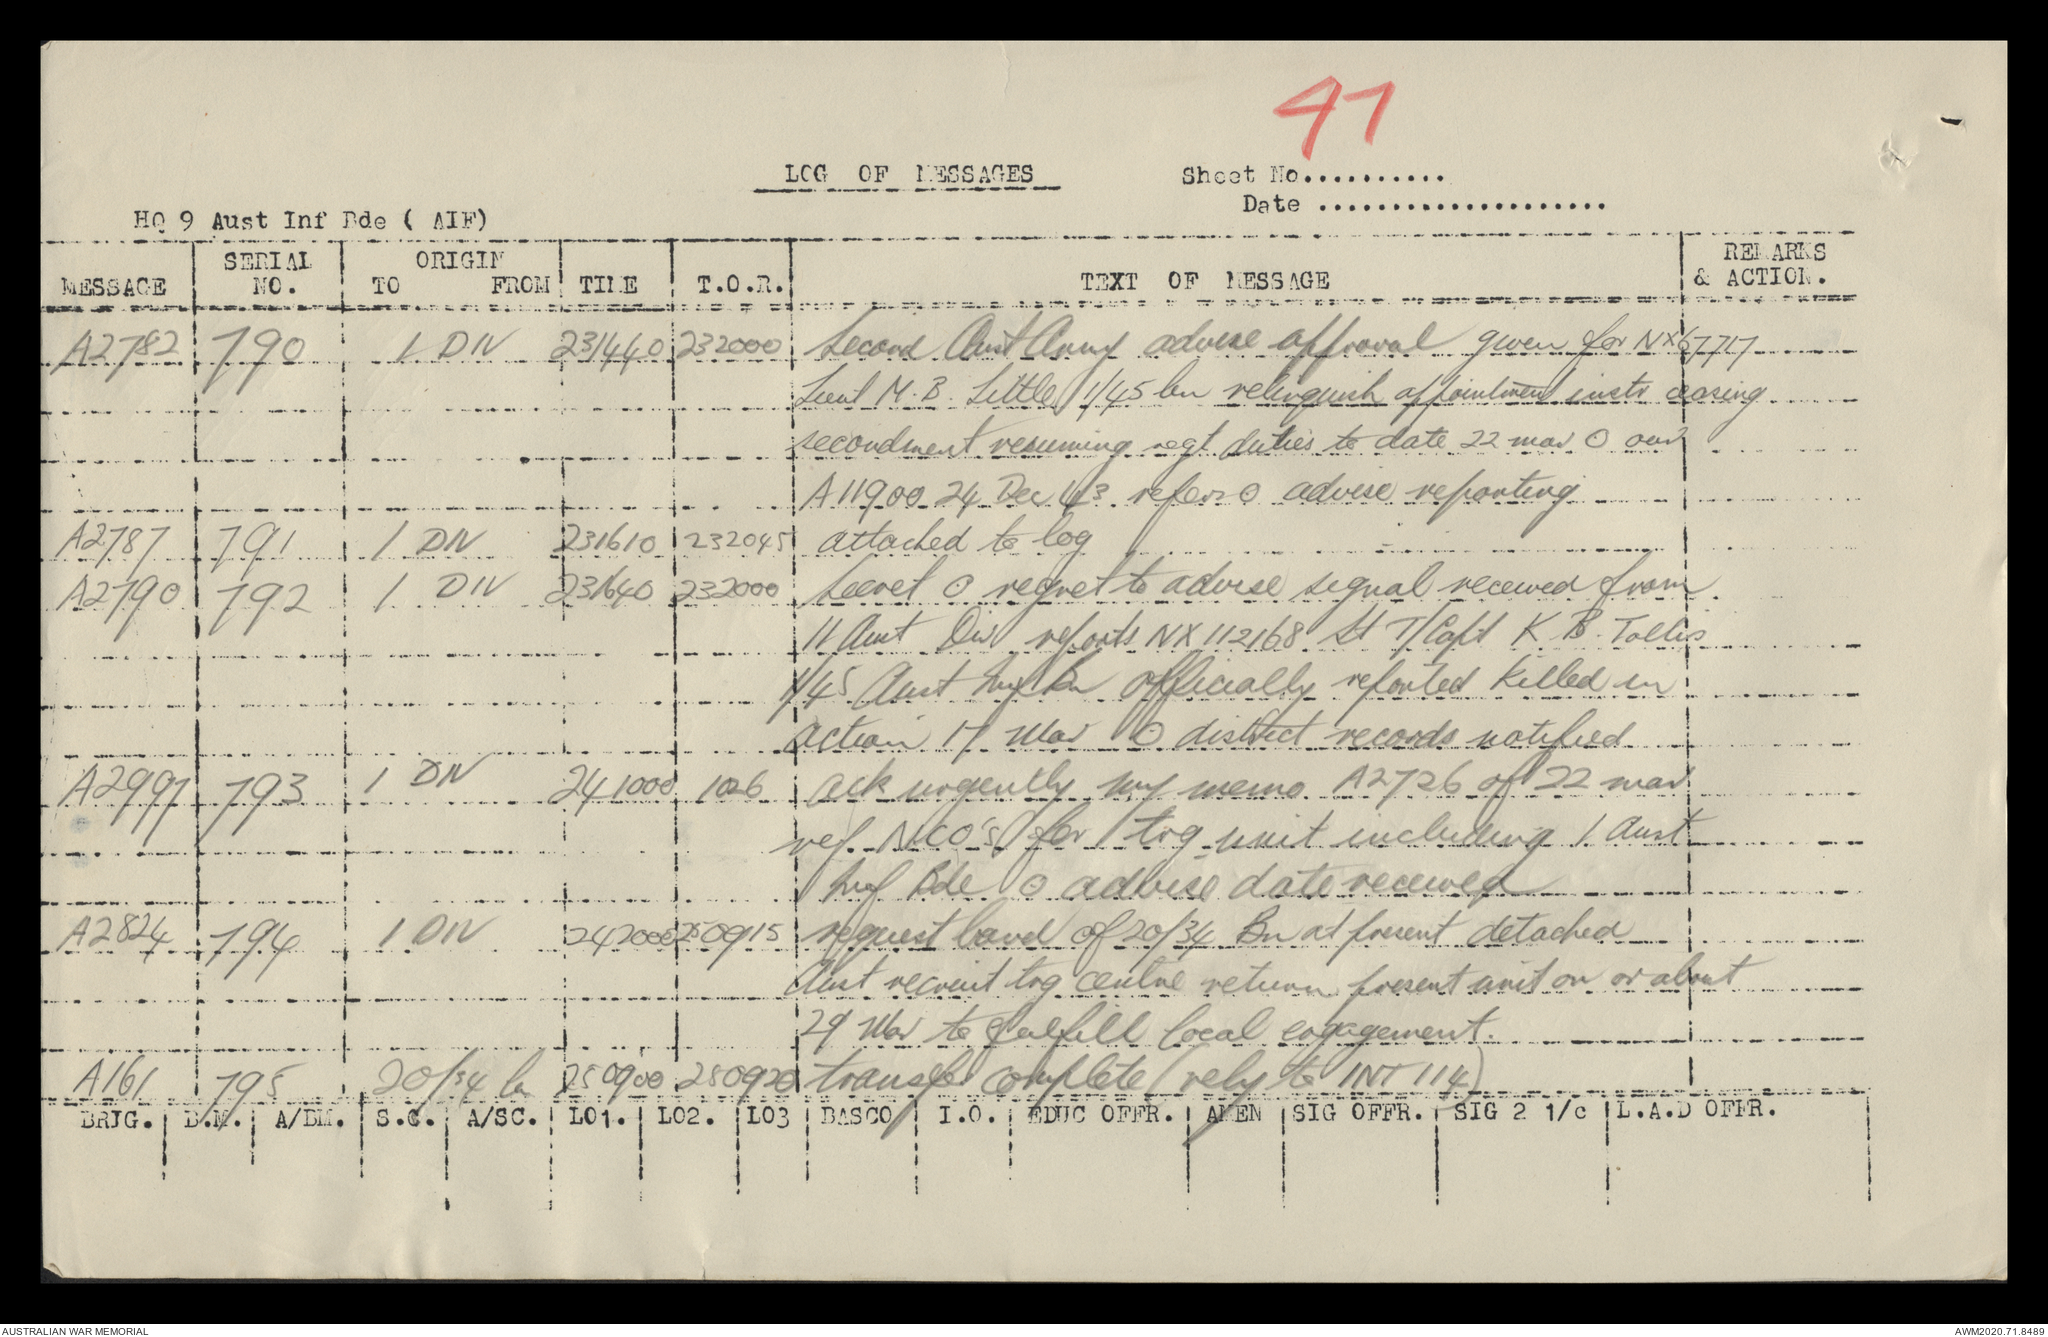 47
LOG OF MESSAGES
Sheet No..........
Date .....................
HQ 9 Aust Inf Bde ( AIF)
MESSAGE SERIAL NO. ORIGIN TO FROM TIME T.O.R. TEXT OF MESSAGE REMARKS & ACTION.
A2782 790 1 DIV 231440 232000 Second Aust Army advise approval given for NX67717
Lieut M.B. Little 1/45 bn relinquish appointment instr ceasing
secondment resuming regt duties to date 22 mar O our
A11900 24 Dec 43 refers O advise reporting
A2787 791 1 DIV 231610 232045 attached to log
A2790 792 1 DIV 231640 232000 Secret O regret to advise signal received from
11 Aust Div reports NX112168 Lt T/Capt K.B. Tollis
1/45 Aust Inf Bn officially reported killed in
action 17 Mar O district records notified
A2997 793 1 DIV 241000 1026 ack urgently my memo A2726 of 22 mar
ref. NCO's for 1 trg unit including 1 Aust
Inf Bde O advise date received
A2824 794 1 DIV 242000 250915 request band of 20/34 Bn at present detached
Aust recruit trg centre return present unit on or about
29 Mar to fulfill local engagement.
A161 795 20/34 bn 250900 250920 transfer complete (rely to INT 114)
BRIG. B.M. A/BM. S.C. A/SC. LO1. LO2. LO3 BASCO I.O. EDUC OFFR. AMEN SIG OFFR. SIG 2 1/c L.A.D OFFR.
AUSTRALIAN WAR MEMORIAL AWM2020.71.8489